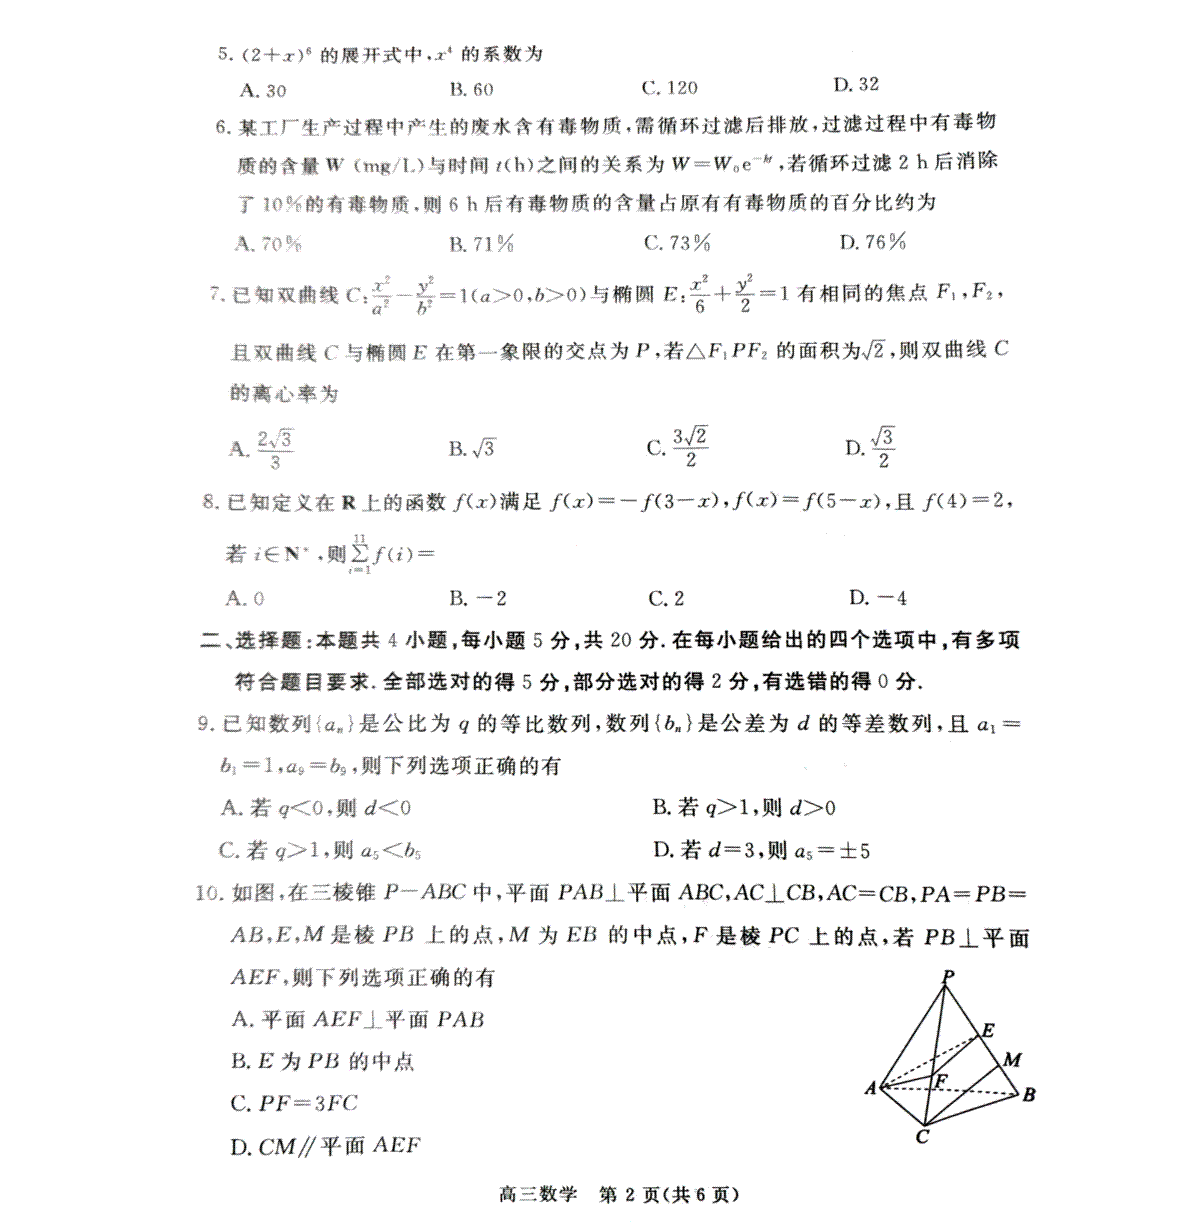 5. (2+x)⁶ 的展开式中,x⁴ 的系数为
A. 30 B. 60 C. 120 D. 32
6. 某工厂生产过程中产生的废水含有毒物质,需循环过滤后排放,过滤过程中有毒物
质的含量 W (mg/L)与时间 t(h)之间的关系为 W=W₀e^{-kt},若循环过滤 2 h 后消除
了 10%的有毒物质,则 6 h 后有毒物质的含量占原有有毒物质的百分比约为
A. 70% B. 71% C. 73% D. 76%
7. 已知双曲线 C: x²/a² - y²/b² =1(a>0,b>0)与椭圆 E: x²/6 + y²/2 =1 有相同的焦点 F₁,F₂,
且双曲线 C 与椭圆 E 在第一象限的交点为 P,若△F₁PF₂ 的面积为√2,则双曲线 C
的离心率为
A. 2√3/3 B. √3 C. 3√2/2 D. √3/2
8. 已知定义在 R 上的函数 f(x)满足 f(x)=-f(3-x),f(x)=f(5-x),且 f(4)=2,
若 i∈N*,则∑_{i=1}^{11} f(i)=
A. 0 B. -2 C. 2 D. -4
二、选择题:本题共 4 小题,每小题 5 分,共 20 分. 在每小题给出的四个选项中,有多项
符合题目要求. 全部选对的得 5 分,部分选对的得 2 分,有选错的得 0 分.
9. 已知数列{aₙ}是公比为 q 的等比数列,数列{bₙ}是公差为 d 的等差数列,且 a₁=
b₁=1,a₉=b₉,则下列选项正确的有
A. 若 q<0,则 d<0 B. 若 q>1,则 d>0
C. 若 q>1,则 a₅<b₅ D. 若 d=3,则 a₅=±5
10. 如图,在三棱锥 P-ABC 中,平面 PAB⊥平面 ABC,AC⊥CB,AC=CB,PA=PB=
AB,E,M 是棱 PB 上的点,M 为 EB 的中点,F 是棱 PC 上的点,若 PB⊥平面
AEF,则下列选项正确的有
A. 平面 AEF⊥平面 PAB
B. E 为 PB 的中点
C. PF=3FC
D. CM∥平面 AEF
P
E
M
A
F
B
C
高三数学 第 2 页(共 6 页)